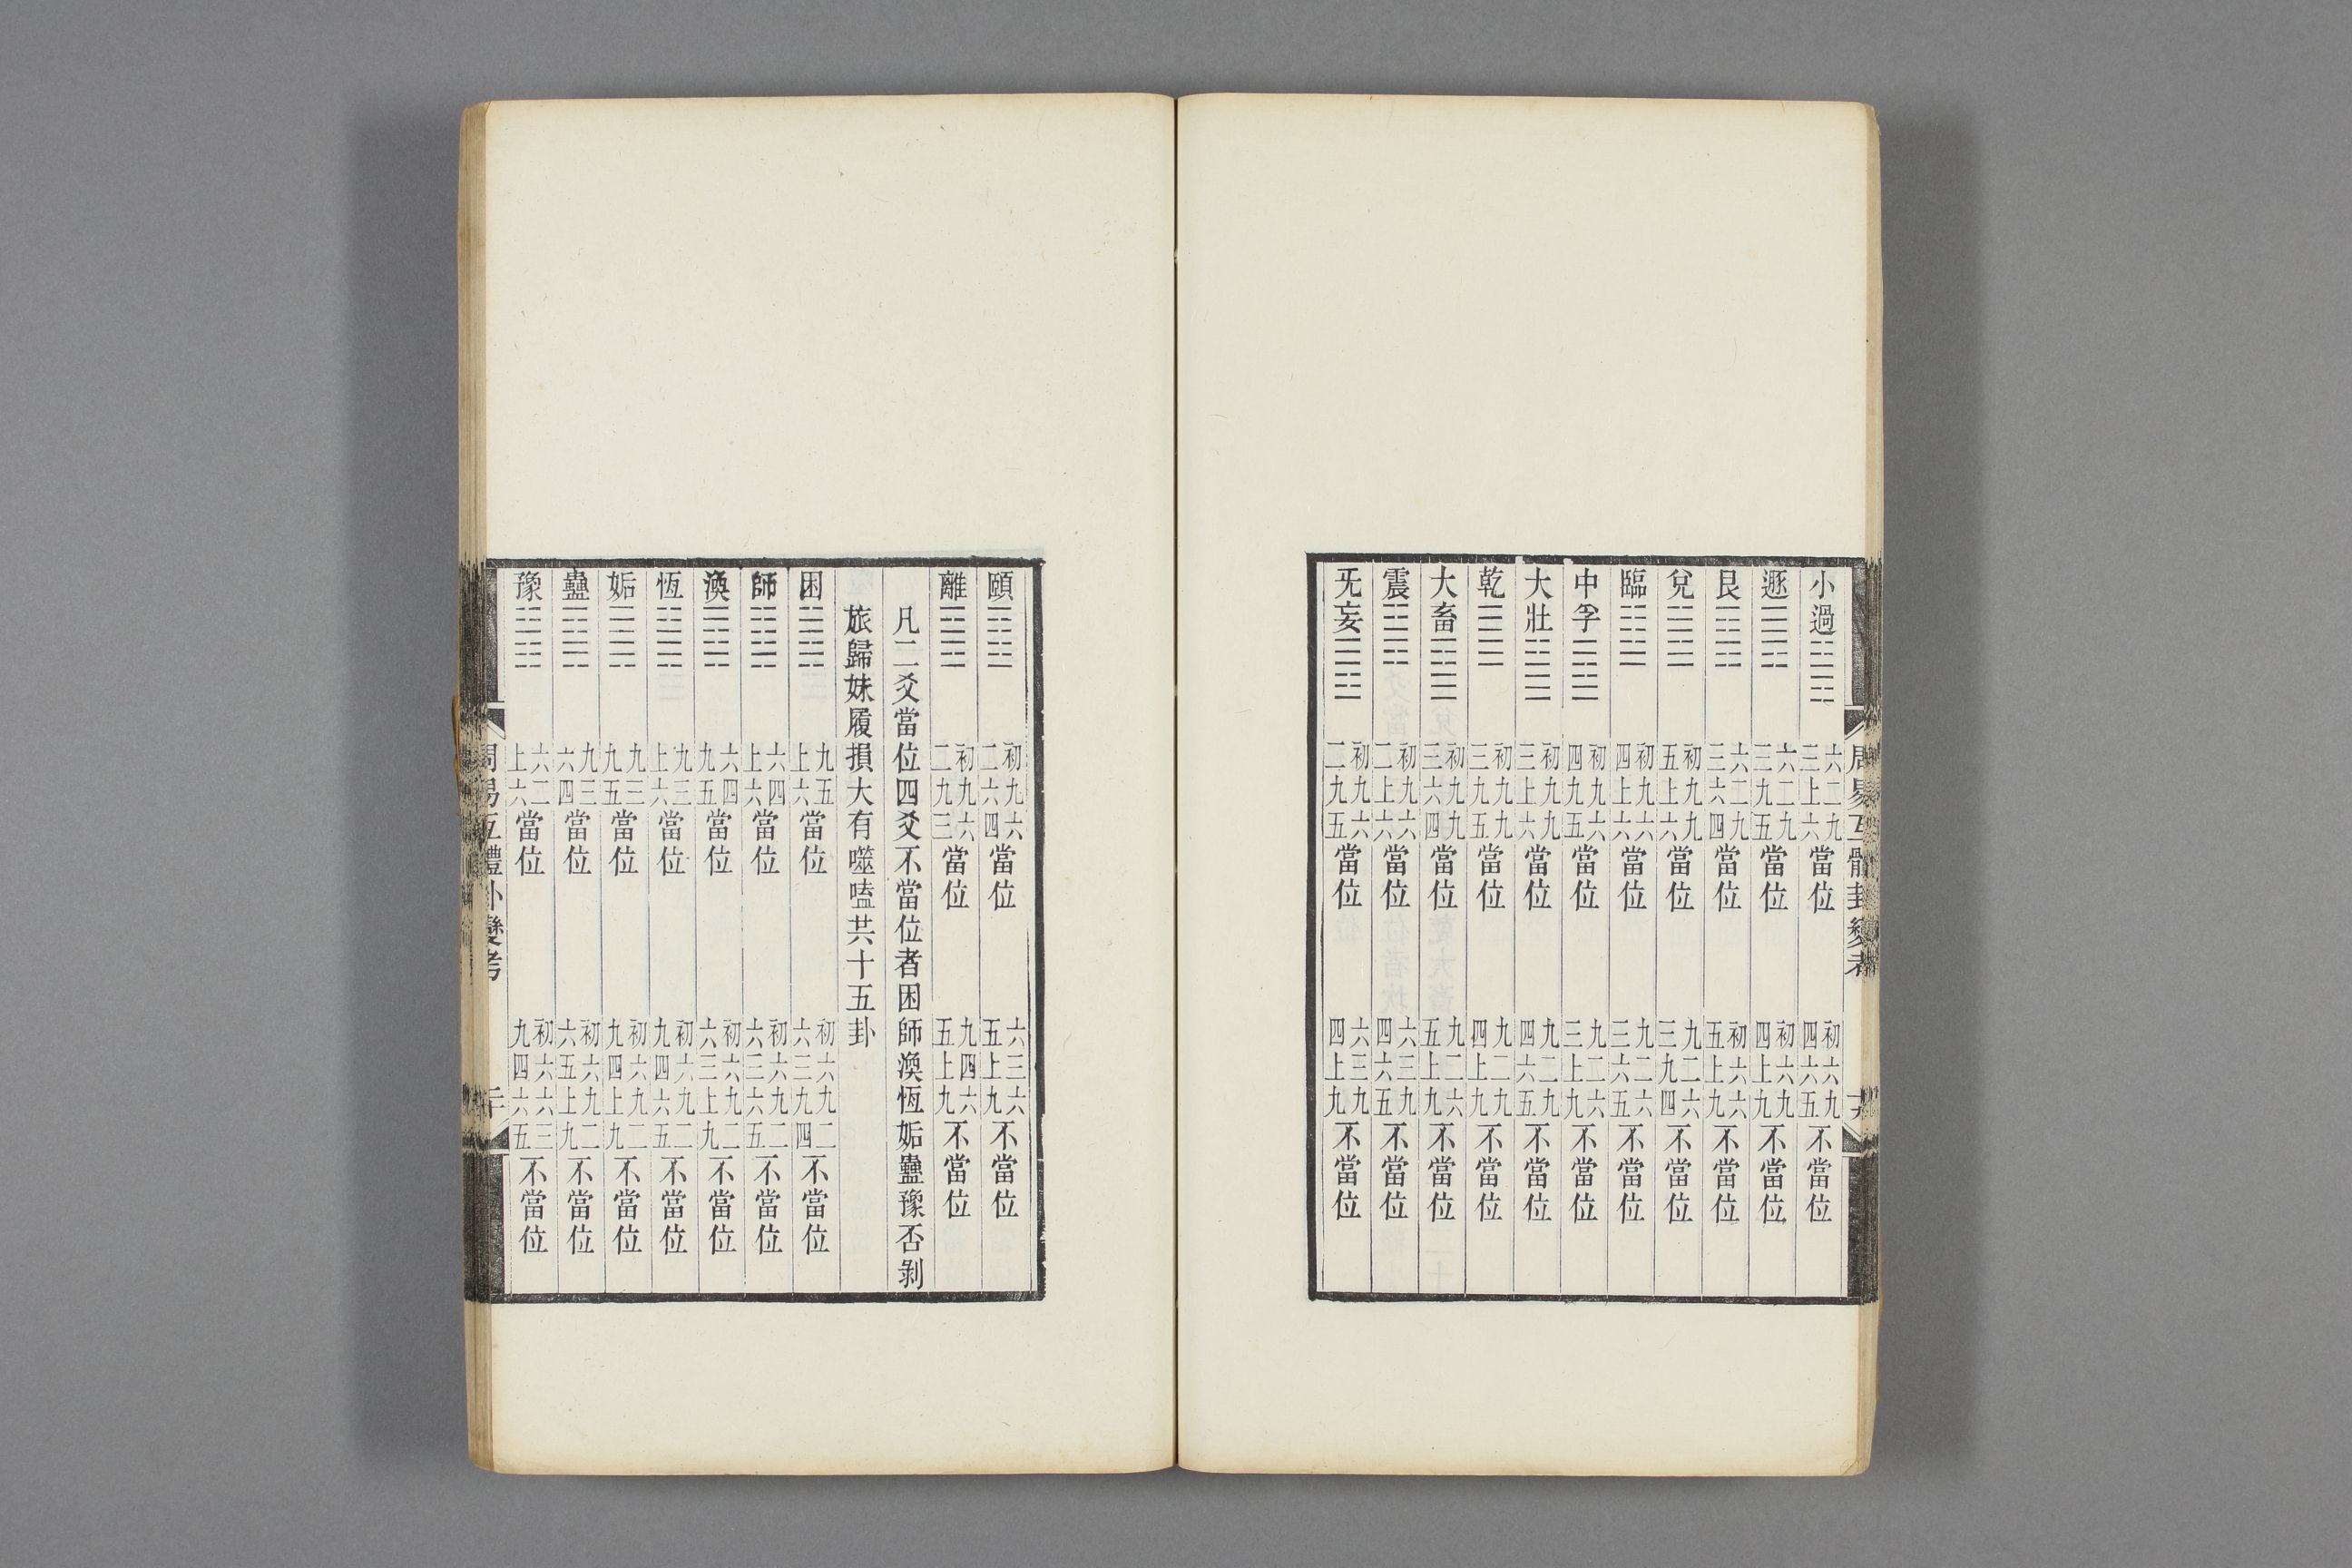 周易互體卦變考
小過䷽六二九三上六當位 初六九四六五不當位
遯䷠六二九三九五當位 初六九四上九不當位
艮䷳六二九三六四當位 初六六五上九不當位
兌䷹初九九五上六當位 九二六三九四不當位
臨䷒初九六四上六當位 九二六三六五不當位
中孚䷼初九六四九五當位 九二六三上九不當位
大壯䷡初九九三上六當位 九二九四六五不當位
乾䷀初九九三九五當位 九二九四上九不當位
大畜䷙初九九三六四當位 九二六五上九不當位
震䷲初九六二上六當位 六三九四六五不當位
无妄䷘初九六二九五當位 六三九四上九不當位
頤䷚初九六二六四當位 六三六五上九不當位
離䷝初九六二九三當位 九四六五上九不當位
凡二爻當位四爻不當位者困師渙恆姤蠱豫否剝
旅歸妹履損大有噬嗑共十五卦
困䷮九五上六當位 初六九二六三九四不當位
師䷆六四上六當位 初六九二六三六五不當位
渙䷺六四九五當位 初六九二六三上九不當位
恆䷟九三上六當位 初六九二九四六五不當位
姤䷫九三九五當位 初六九二九四上九不當位
蠱䷑九三六四當位 初六九二六五上九不當位
豫䷏六二上六當位 初六六三九四六五不當位
周易互體卦變考